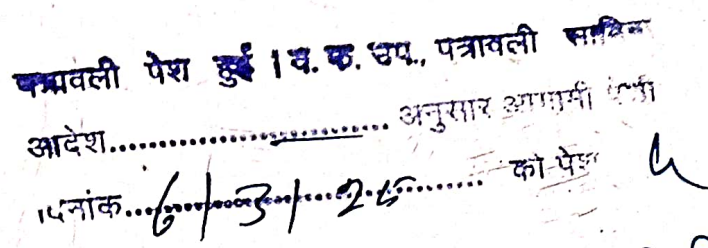 पत्रावली पेश हुई । व. फ. उप., पत्रावली साबिक
आदेश.............................. अनुसार आगामी पेशी
दिनांक...6/3/25............ को पेश